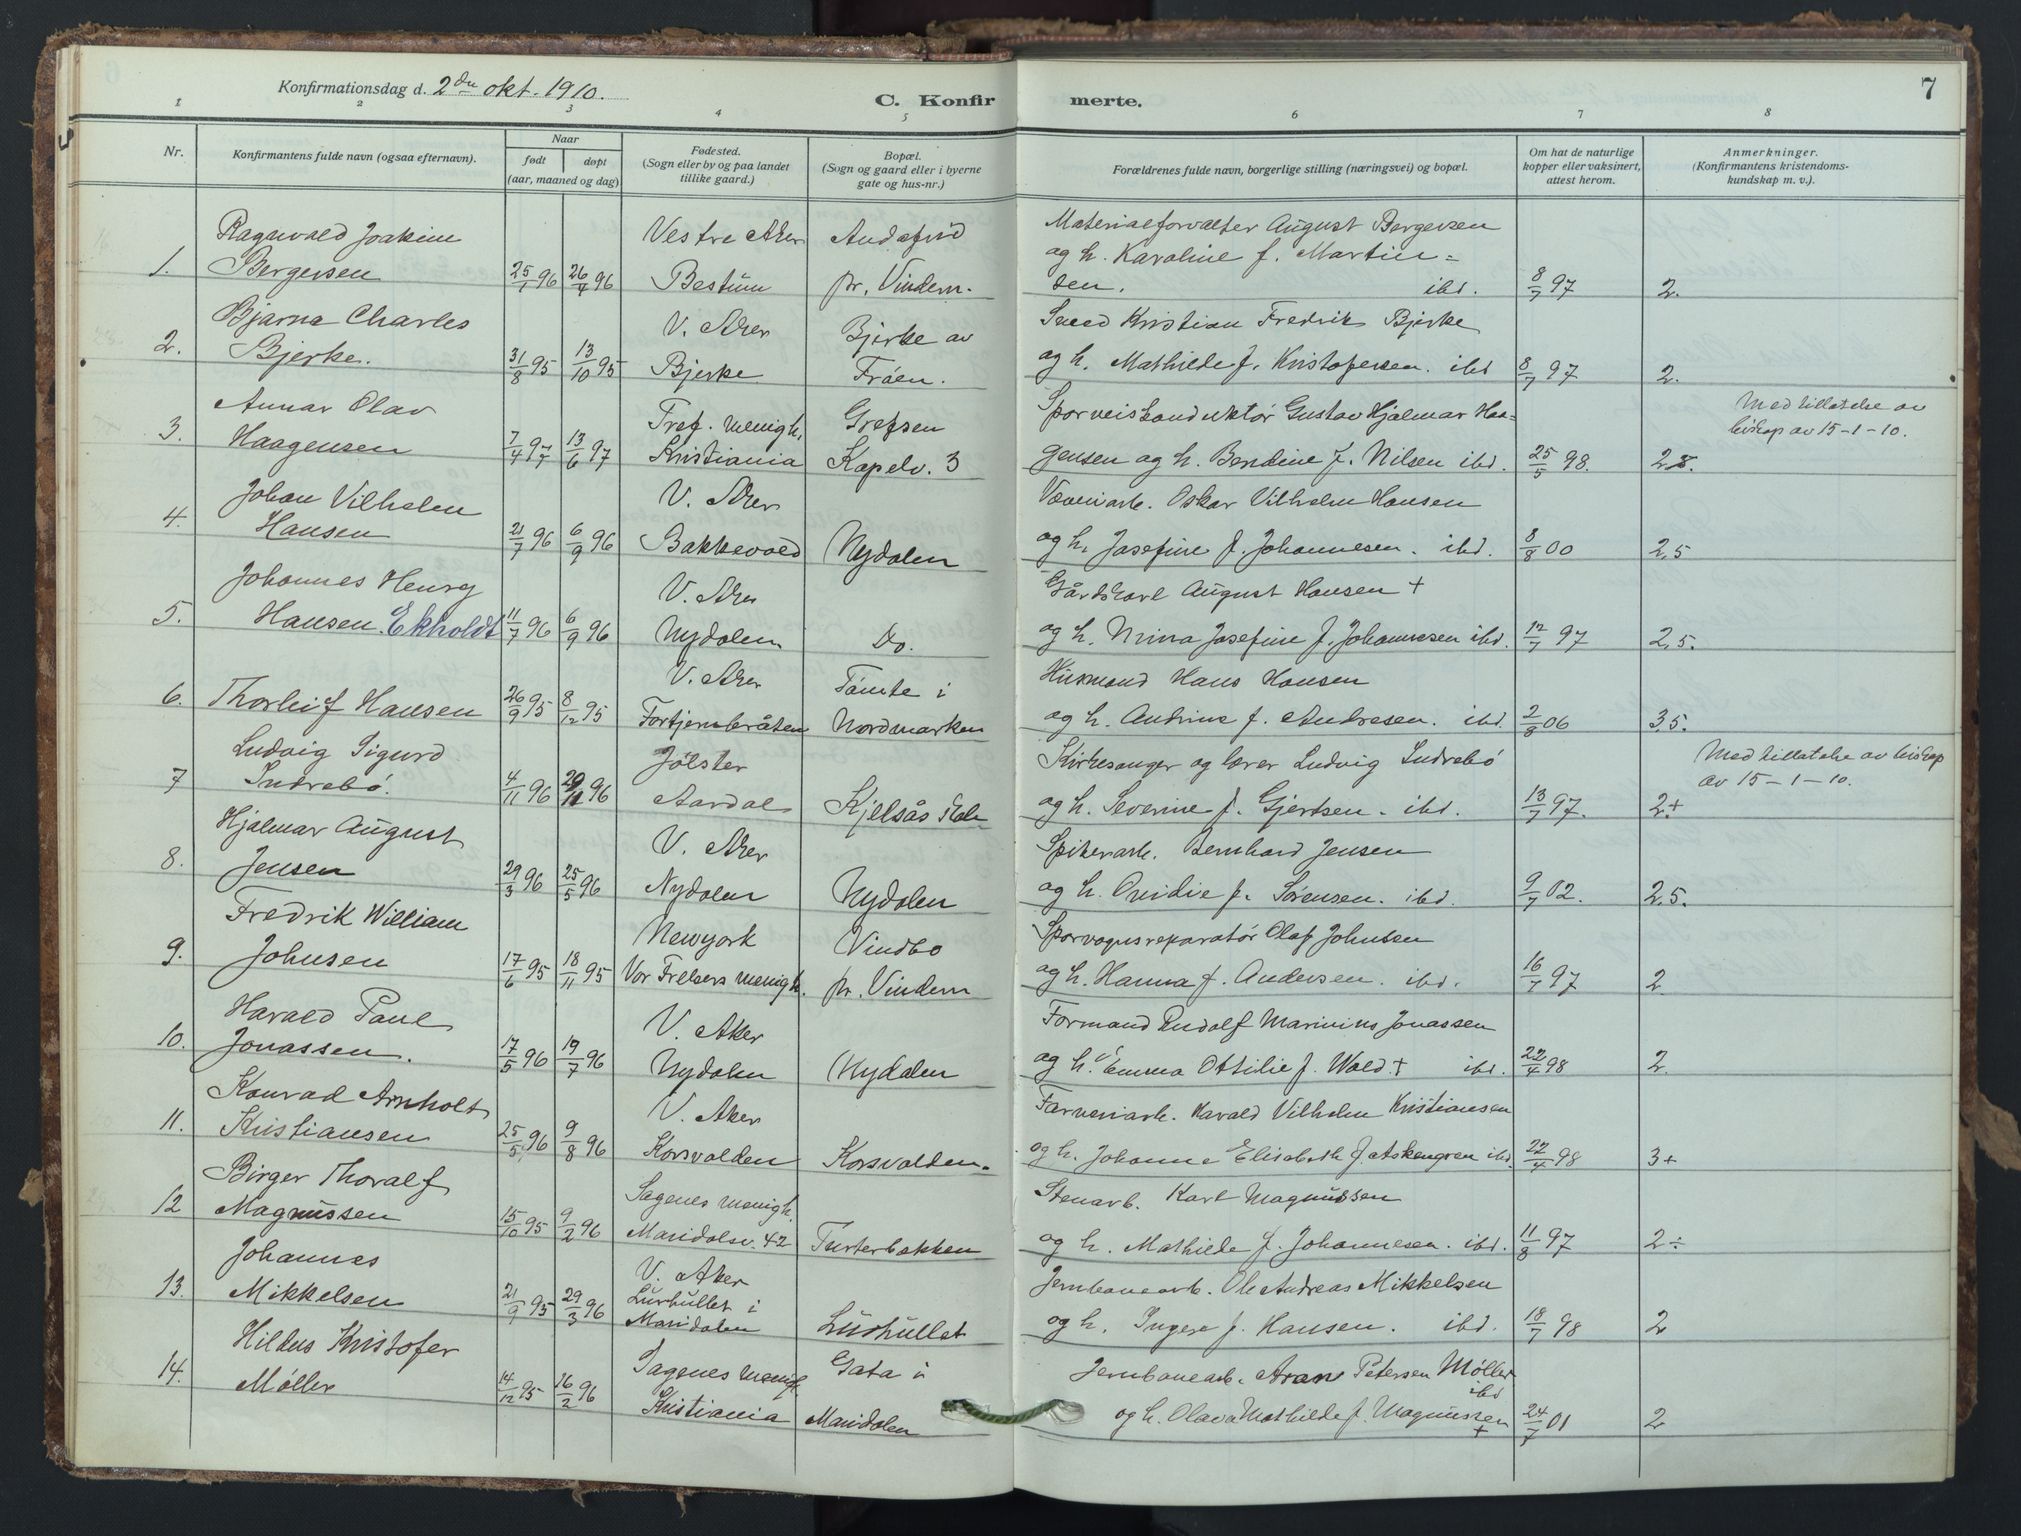 7
Konfirmationsdag d. 2den okt. 1910.
C. Konfir merte.
1 2 3 4 5 6 7 8
Nr.
Konfirmantens fulde navn (ogsaa efternavn).
Naar
født døpt
(aar, maaned og dag)
Fødested.
(Sogn eller by og paa landet
tillike gaard.)
Bopæl.
(Sogn og gaard eller i byerne
gate og hus-nr.)
Forældrenes fulde navn, borgerlige stilling (næringsvei) og bopæl.
Om hat de naturlige
kopper eller vaksinert,
attest herom.
Anmerkninger.
(Konfirmantens kristendoms-
kundskap m. v.).
Ragnvald Joakim Vestre Aker Materialforvalter August Bergersen
og h. Karoline f. Martin=
1. Bergersen 25/1 96 26/4 96 Bestum pr. Vindern. sen. ibd. 8/7 97 2.
Bjarne Charles V. Aker Bjerke av Smed Kristian Fredrik Bjerke
2. Bjerke. 31/8 95 13/10 95 Bjerke Frøen. og h. Mathilde f. Kristofersen. ibd 8/7 97 2.
Annar Olav Tref. menigh. Grefsen Sporveiskonduktør Gustav Hjalmar Haa= Med tillatelse av
biskop av 15-1-10.
3. Haagensen 7/4 97 13/6 97 Kristiania Kapelv. 3 gensen og h. Bendine f. Nilsen ibd. 25/5 98.
Johan Vilhelm V. Aker Væveriarb. Oskar Vilhelm Hansen
4. Hansen 21/7 96 6/9 96 Bakkevold Nydalen og h. Josefine f. Johannesen. ibd. 8/8 00 2,5
Johannes Henry V. Aker Gårdskarl August Hansen +
5. Hansen. Ekholdt 11/7 96 6/9 96 Nydalen Do. og h. Mina Josefine f. Johannesen ibd. 12/7 97 2,5.
V. Aker Tømte i Husmand Hans Hansen
6. Thorleif Hansen 26/9 95 8/12 95 Fortjernbråten Nordmarken og h. Andrine f. Andresen. ibd. 2/8 06 3,5.
Ludvig Sigurd Jølster Kirkesanger og lærer Ludvig Indrebø Med tillatelse av biskop
av 15-1-10.
7 Indrebø. 4/11 96 29/11 96 Aardal Kjelsås skole og h. Severine f. Gjertsen. ibd. 13/7 97. 2+
Hjalmar August V. Aker Spikerarb. Bernhard Jensen
8. Jensen 29/3 96 25/5 96 Nydalen Nydalen og h. Ovidie f. Sørensen. ibd. 9/7 02. 2,5.
Fredrik William Newyork Vindbo Sporvognsreparatør Olaf Johnsen
9. Johnsen 17/6 95 18/11 95 Vor Frelsers menigh. pr. Vindern og h. Hanna f. Andersen. ibd. 16/7 97 2
Harald Paul V. Aker Formand Rudolf Marinius Jonassen
10. Jonassen. 17/5 96 19/7 96 Nydalen Nydalen og h. Emma Ottilie f. Wold + ibd. 22/4 98 2.
Konrad Arnholt V. Aker Farveriarb. Harald Vilhelm Kristiansen
11. Kristiansen 25/5 96 9/8 96 Korsvolden Korsvolden. og h. Johanne Elisabeth f. Askengren ibd. 22/4 98 3+
Birger Thoralf Sagenes menigh. Stenarb. Karl Magnussen
12 Magnussen 15/10 95 9/2 96 Maridalsv. 42 Turterbakken og h. Mathilde f. Johannesen. ibd. 11/8 97 2÷
Johannes V. Aker Jernbanearb. Ole Andreas Mikkelsen
13. Mikkelsen 21/9 95 29/3 96 Lurhullet i
Maridalen Lurhullet og h. Ingera f. Hansen. ibd. 18/7 98 2
Hildus Kristofer Sagenes menigh. Gata i Jernbanearb. Petersen Møller
ibd
14. Møller 14/12 95 16/2 96 Kristiania Maridalen og h. Olava Mathilde f. Magnussen + 24/7 01 2